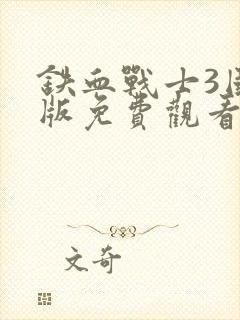 鉄血戰士3
版免費觀看
文奇